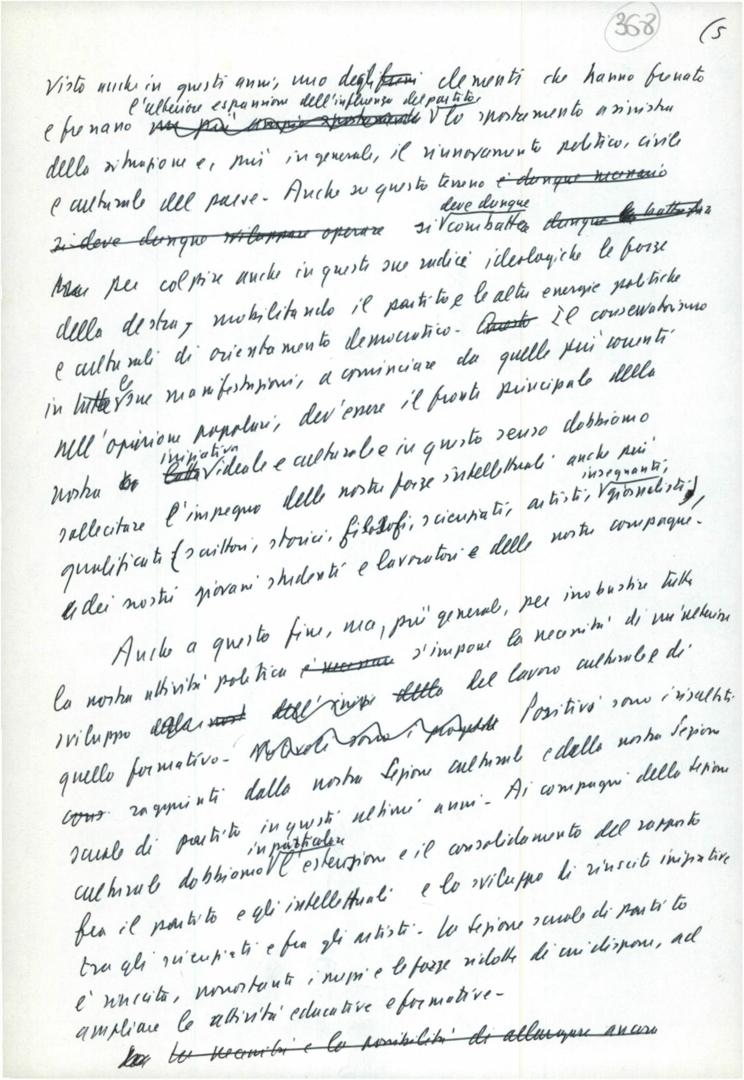 368 (5
visto anche in questi anni, uno degli freni elementi che hanno frenato
l'ulteriore espansione dell'influenza del partito
e frenano un più ampio spostamento lo spostamento a sinistra
della situazione e, più in generale, il rinnovamento politico, civile
e culturale del paese. Anche su questo terreno è dunque necessario
deve dunque
si deve dunque sviluppare operare si combatte dunque la battaglia
per colpire anche in queste sue radici ideologiche le forze
della destra, mobilitando il partito e le altre energie politiche
e culturali di orientamento democratico. Questo Il conservatorismo
in tutte le sue manifestazioni, a cominciare da quelle più correnti
nell'opinione popolare, dev'essere il fronte principale della
iniziativa
nostra lotta ideale e culturale e in questo senso dobbiamo
sollecitare l'impegno delle nostre forze intellettuali anche più
insegnanti,
qualificate (scrittori, storici, filosofi, scienziati, artisti, giornalisti)
e dei nostri giovani studenti e lavoratori e delle nostre compagne.
Anche a questo fine, ma, più general, per irrobustire tutta
la nostra attività politica è necessario s'impone la necessità di un'ulteriore
sviluppo del lavoro culturale e di
quello formativo. Notevoli sono i progressi Positivi sono i risultati
raggiunti dalla nostra Sezione culturale e dalla nostra Sezione
scuole di partito in questi ultimi anni. Ai compagni della Sezione
in particolare
culturale dobbiamo l'estensione e il consolidamento del rapporto
fra il partito e gli intellettuali e lo sviluppo di riuscite iniziative
tra gli scienziati e fra gli artisti. La Sezione scuole di partito
è riuscita, nonostante i mezzi e le forze ridotte di cui dispone, ad
ampliare le attività educative e formative.
La necessità e la possibilità di allargare ancora